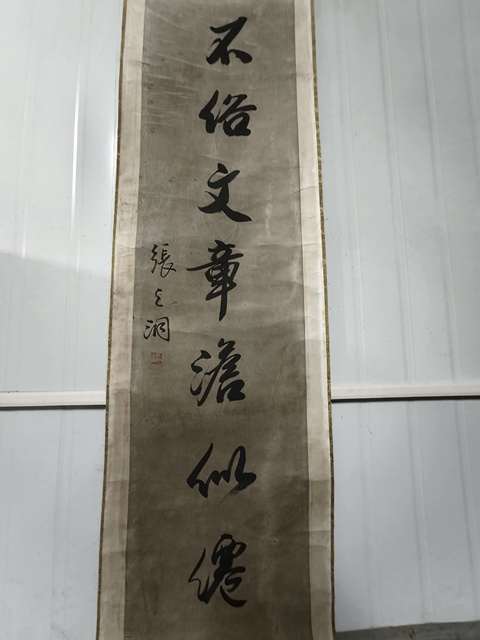 不俗文章澹似僊
張之洞